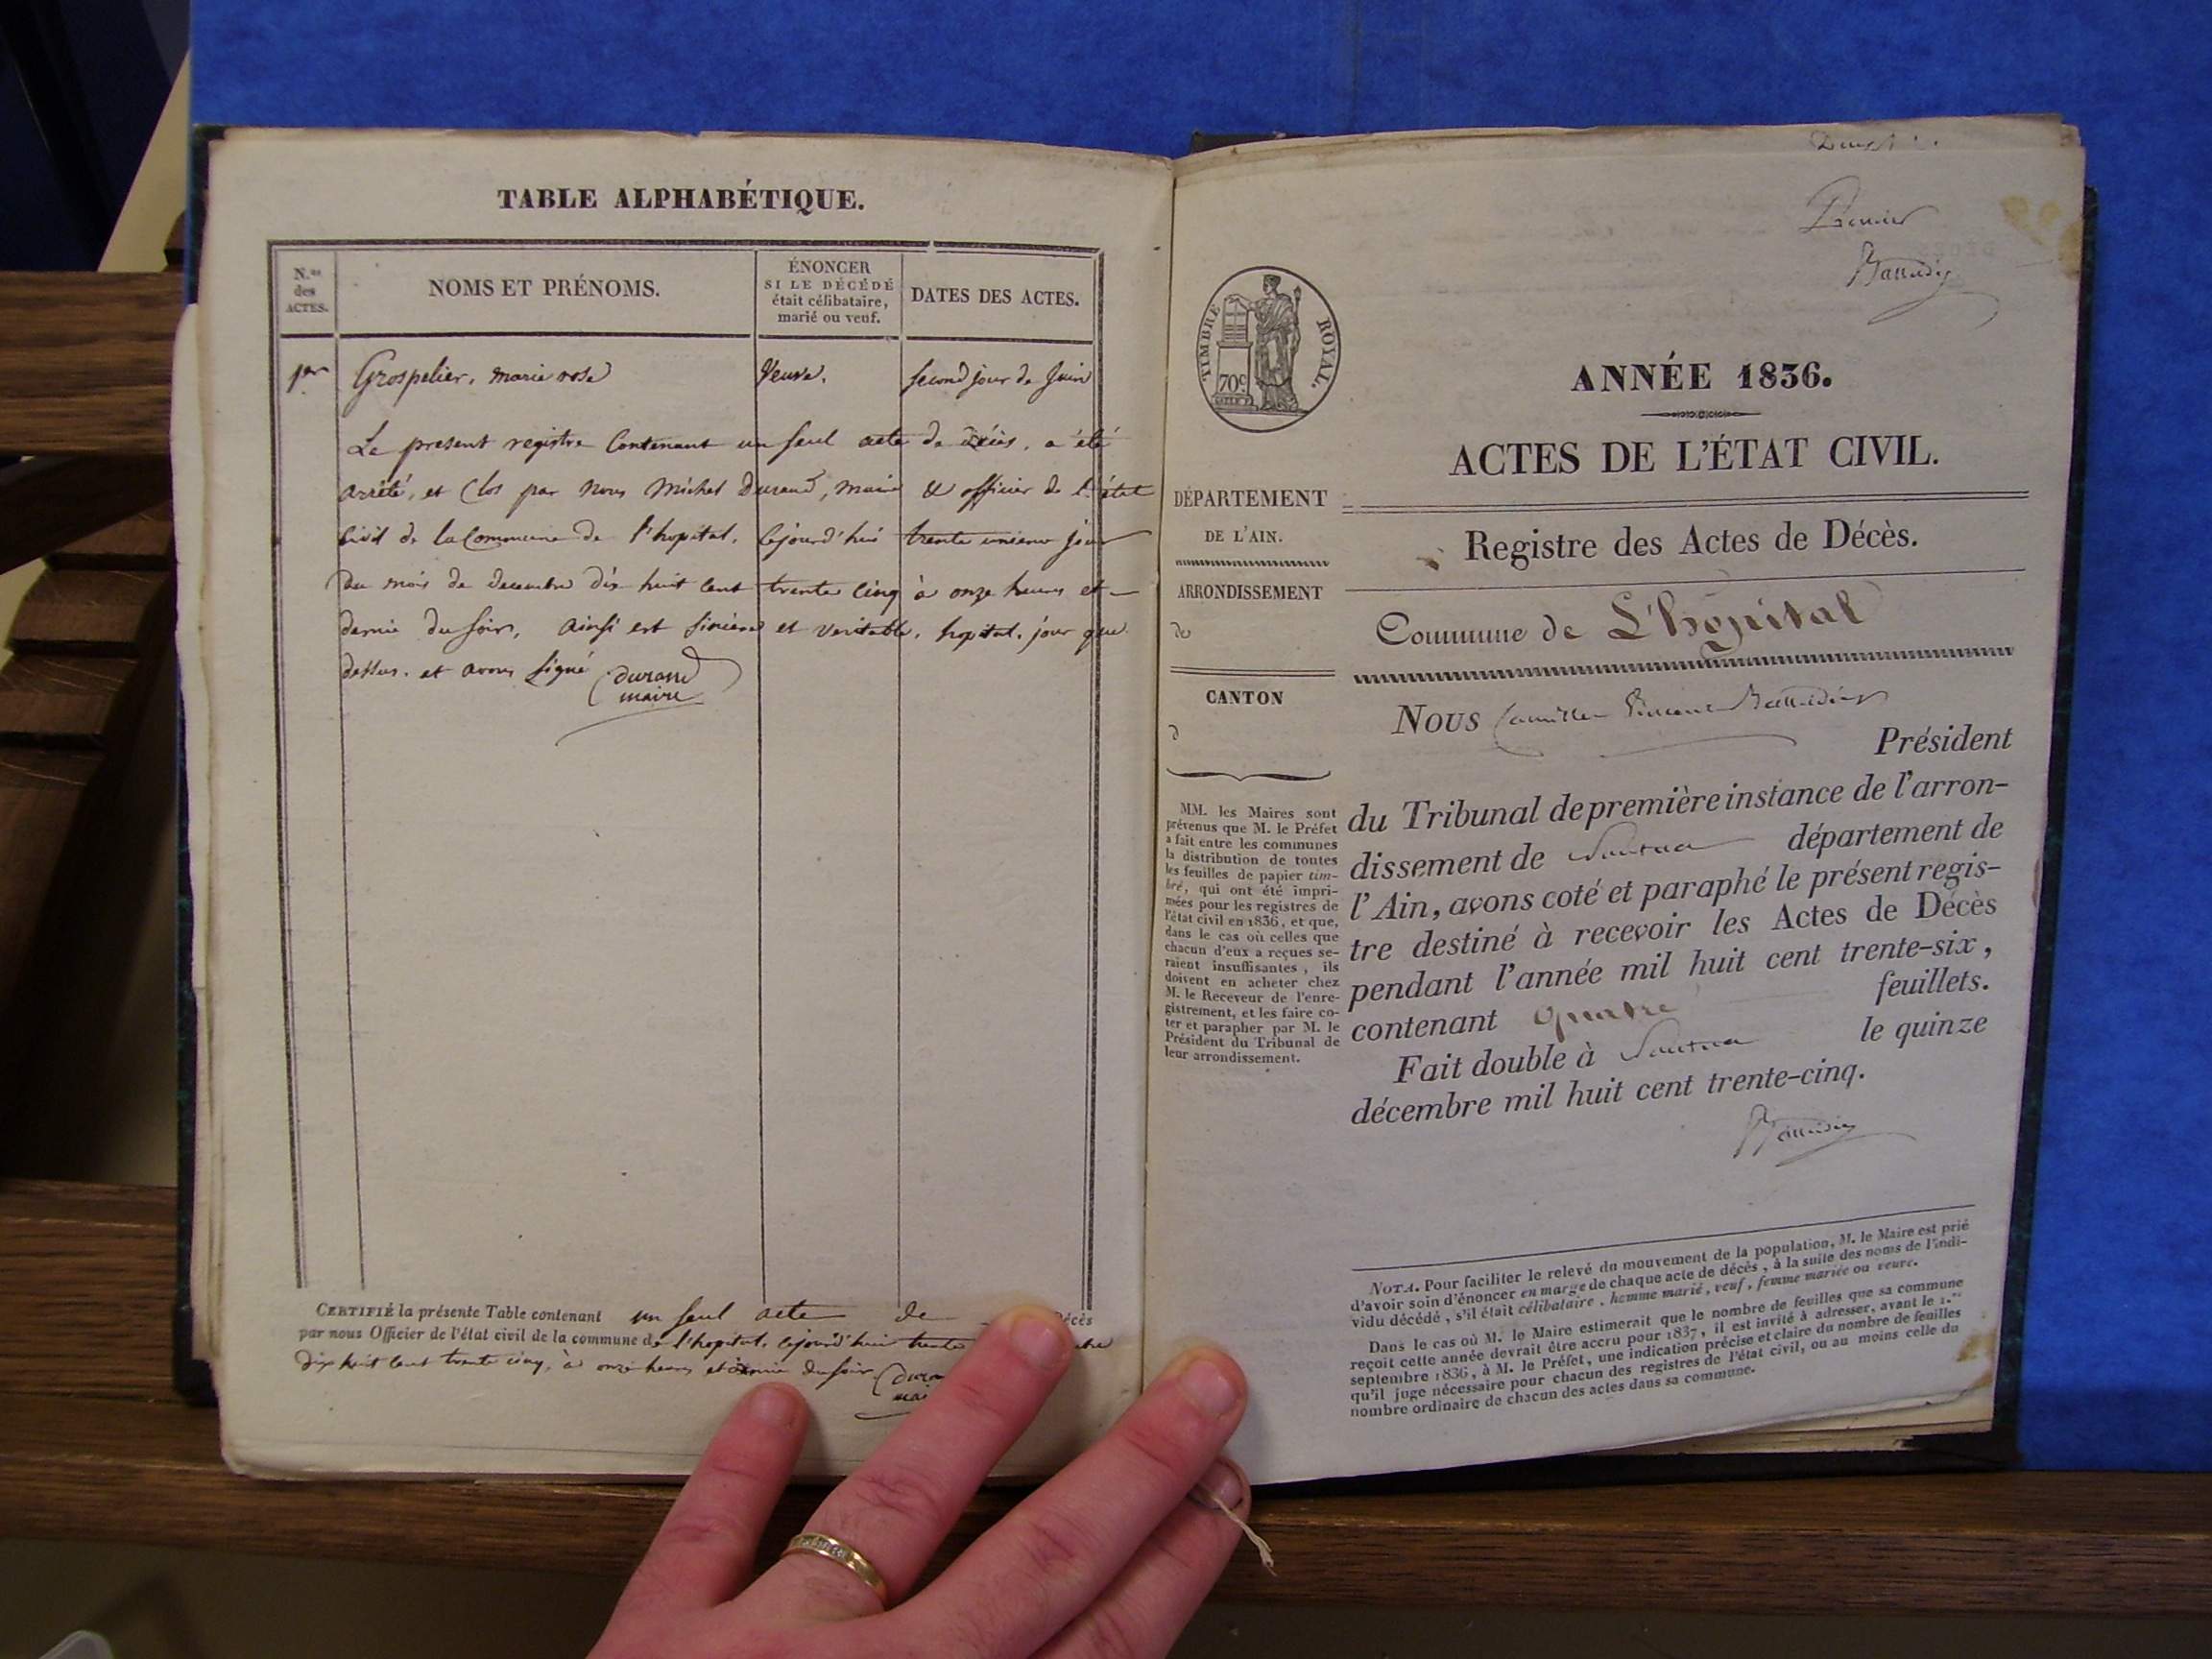 TABLE ALPHABÉTIQUE.
N.os des ACTES.
NOMS ET PRÉNOMS.
ÉNONCER
SI LE DÉCÉDÉ
était célibataire,
marié ou veuf.
DATES DES ACTES.
1er Grospelier, marie rose Veuve. second jour de Juin
Le present registre Contenant un seul acte de décès, a été
arrêté, et Clos par nous Michel Durand, maire & officier de l'état
Civil de la Commune de l'hopital. Cejourd'hui trente unieme jour
du mois de decembre dix huit cent trente cinq à onze heures et
demie du soir, ainsi est sincere et veritable, hopital, jour que
dessus. et avons signé durand
maire
CERTIFIÉ la présente Table contenant un seul acte de Décès
par nous Officier de l'état civil de la commune de l'hopital, cejourd'hui trente
dix huit cent trente cinq, à onze heures et demie du soir
Premier
TIMBRE ROYAL.
70c
ANNÉE 1836.
ACTES DE L'ÉTAT CIVIL.
DÉPARTEMENT
DE L'AIN.
Registre des Actes de Décès.
ARRONDISSEMENT
de
Commune de L'hôpital
CANTON
d
Nous Camille
Président
du Tribunal de première instance de l'arron-
dissement de Nantua département de
l'Ain, avons coté et paraphé le présent regis-
tre destiné à recevoir les Actes de Décès
pendant l'année mil huit cent trente-six,
contenant quatre feuillets.
Fait double à Nantua le quinze
décembre mil huit cent trente-cinq.
MM. les Maires sont
prévenus que M. le Préfet
a fait entre les communes
la distribution de toutes
les feuilles de papier tim-
bré, qui ont été impri-
mées pour les registres de
l'état civil en 1836, et que,
dans le cas où celles que
chacun d'eux a reçues se-
raient insuffisantes, ils
doivent en acheter chez
M. le Receveur de l'enre-
gistrement, et les faire co-
ter et parapher par M. le
Président du Tribunal de
leur arrondissement.
NOTA. Pour faciliter le relevé du mouvement de la population, M. le Maire est prié
d'avoir soin d'énoncer en marge de chaque acte de décès, à la suite des noms de l'indi-
vidu décédé, s'il était célibataire, homme marié, veuf, femme mariée ou veuve.
Dans le cas où M. le Maire estimerait que le nombre de feuilles que sa commune
reçoit cette année devrait être accru pour 1837, il est invité à adresser, avant le 1.er
septembre 1836, à M. le Préfet, une indication précise et claire du nombre de feuilles
qu'il juge nécessaire pour chacun des registres de l'état civil, ou au moins celle du
nombre ordinaire de chacun des actes dans sa commune.